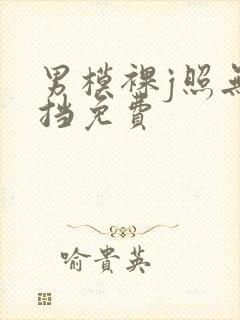 男模裸j照无
挡免費
喻貴英